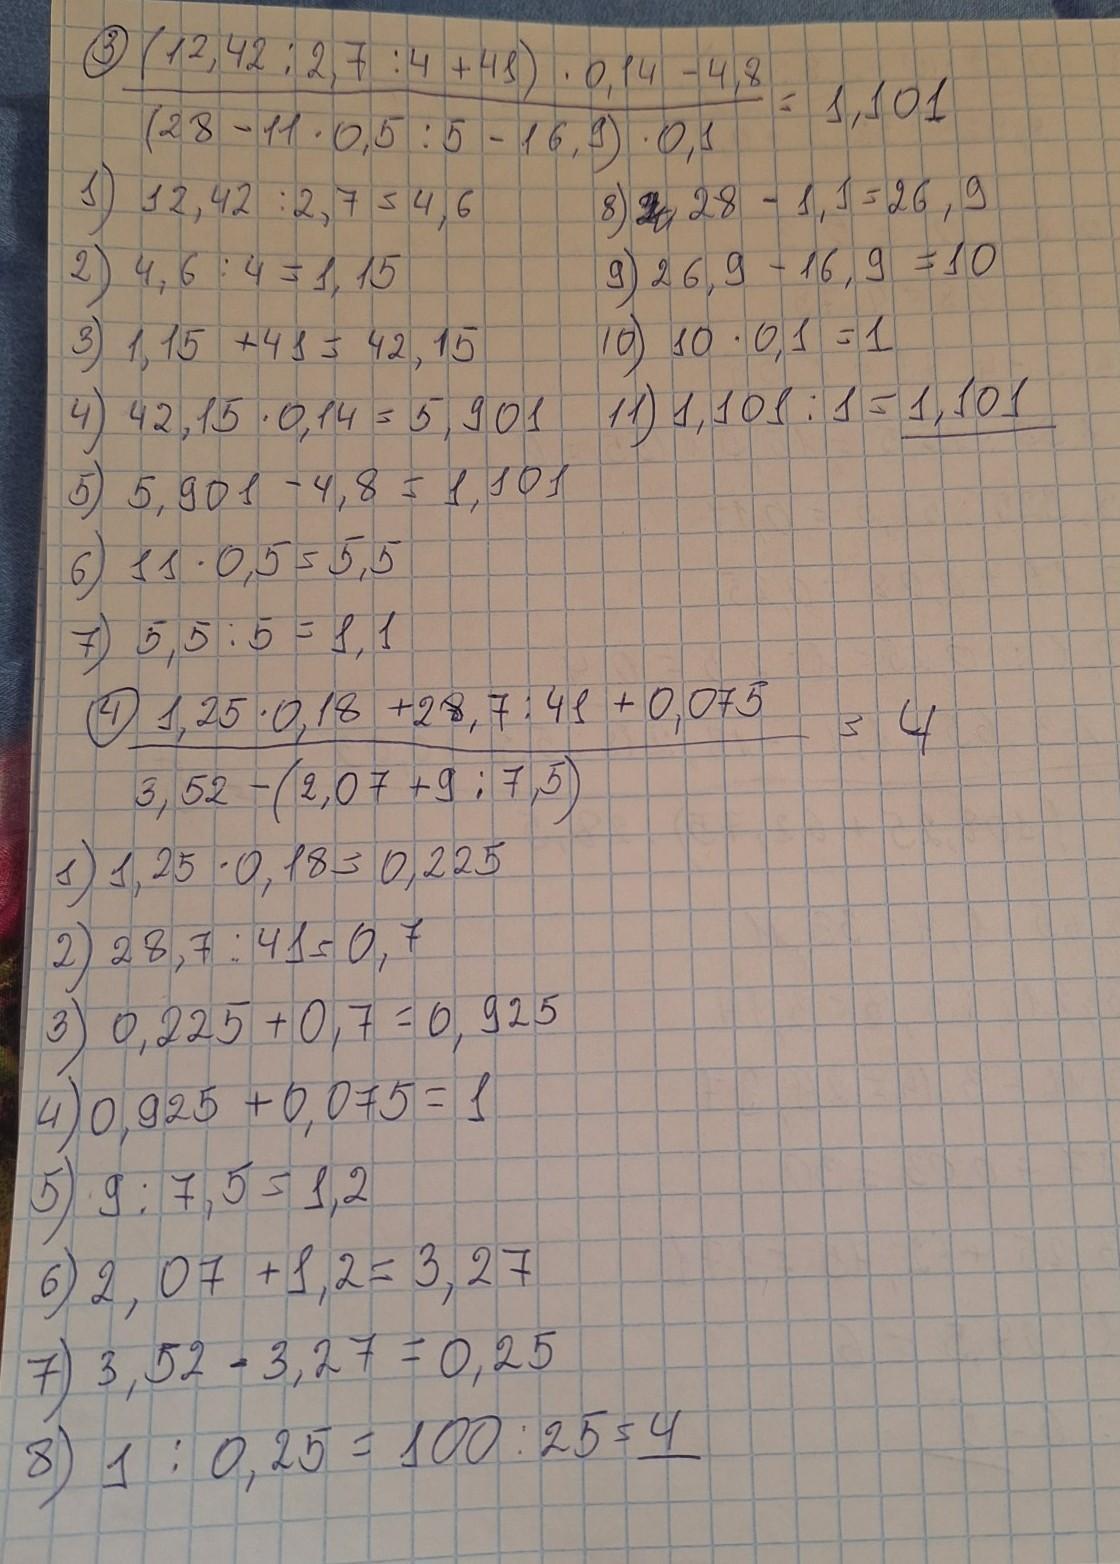 ③ (12,42 : 2,7 : 4 + 41) · 0,14 - 4,8
= 1,101
(28 - 11 · 0,5 : 5 - 16,9) · 0,1
1) 12,42 : 2,7 = 4,6
2) 4,6 : 4 = 1,15
3) 1,15 + 41 = 42,15
4) 42,15 · 0,14 = 5,901
5) 5,901 - 4,8 = 1,101
6) 11 · 0,5 = 5,5
7) 5,5 : 5 = 1,1
8) 28 - 1,1 = 26,9
9) 26,9 - 16,9 = 10
10) 10 · 0,1 = 1
11) 1,101 : 1 = 1,101
④ 1,25 · 0,18 + 28,7 : 41 + 0,075
= 4
3,52 - (2,07 + 9 : 7,5)
1) 1,25 · 0,18 = 0,225
2) 28,7 : 41 = 0,7
3) 0,225 + 0,7 = 0,925
4) 0,925 + 0,075 = 1
5) 9 : 7,5 = 1,2
6) 2,07 + 1,2 = 3,27
7) 3,52 - 3,27 = 0,25
8) 1 : 0,25 = 100 : 25 = 4